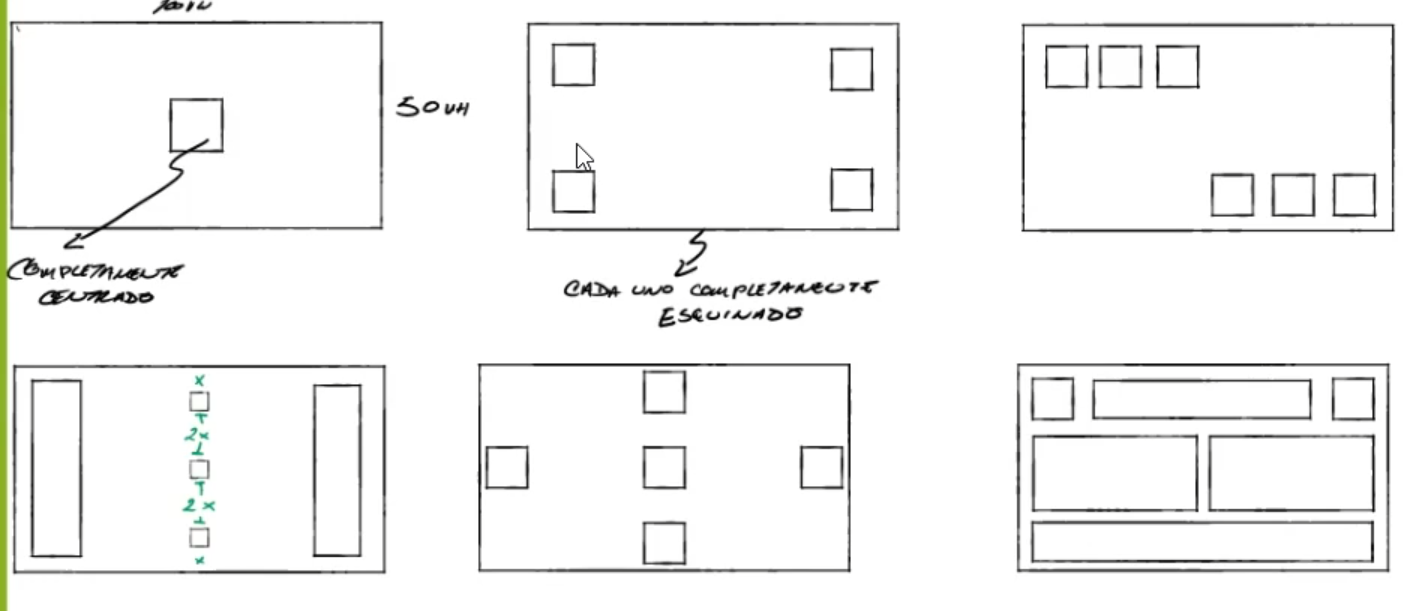 50vH
COMPLETAMENTE
CENTRADO
CADA UNO COMPLETAMENTE
ESQUINADO
x
2x
2x
x